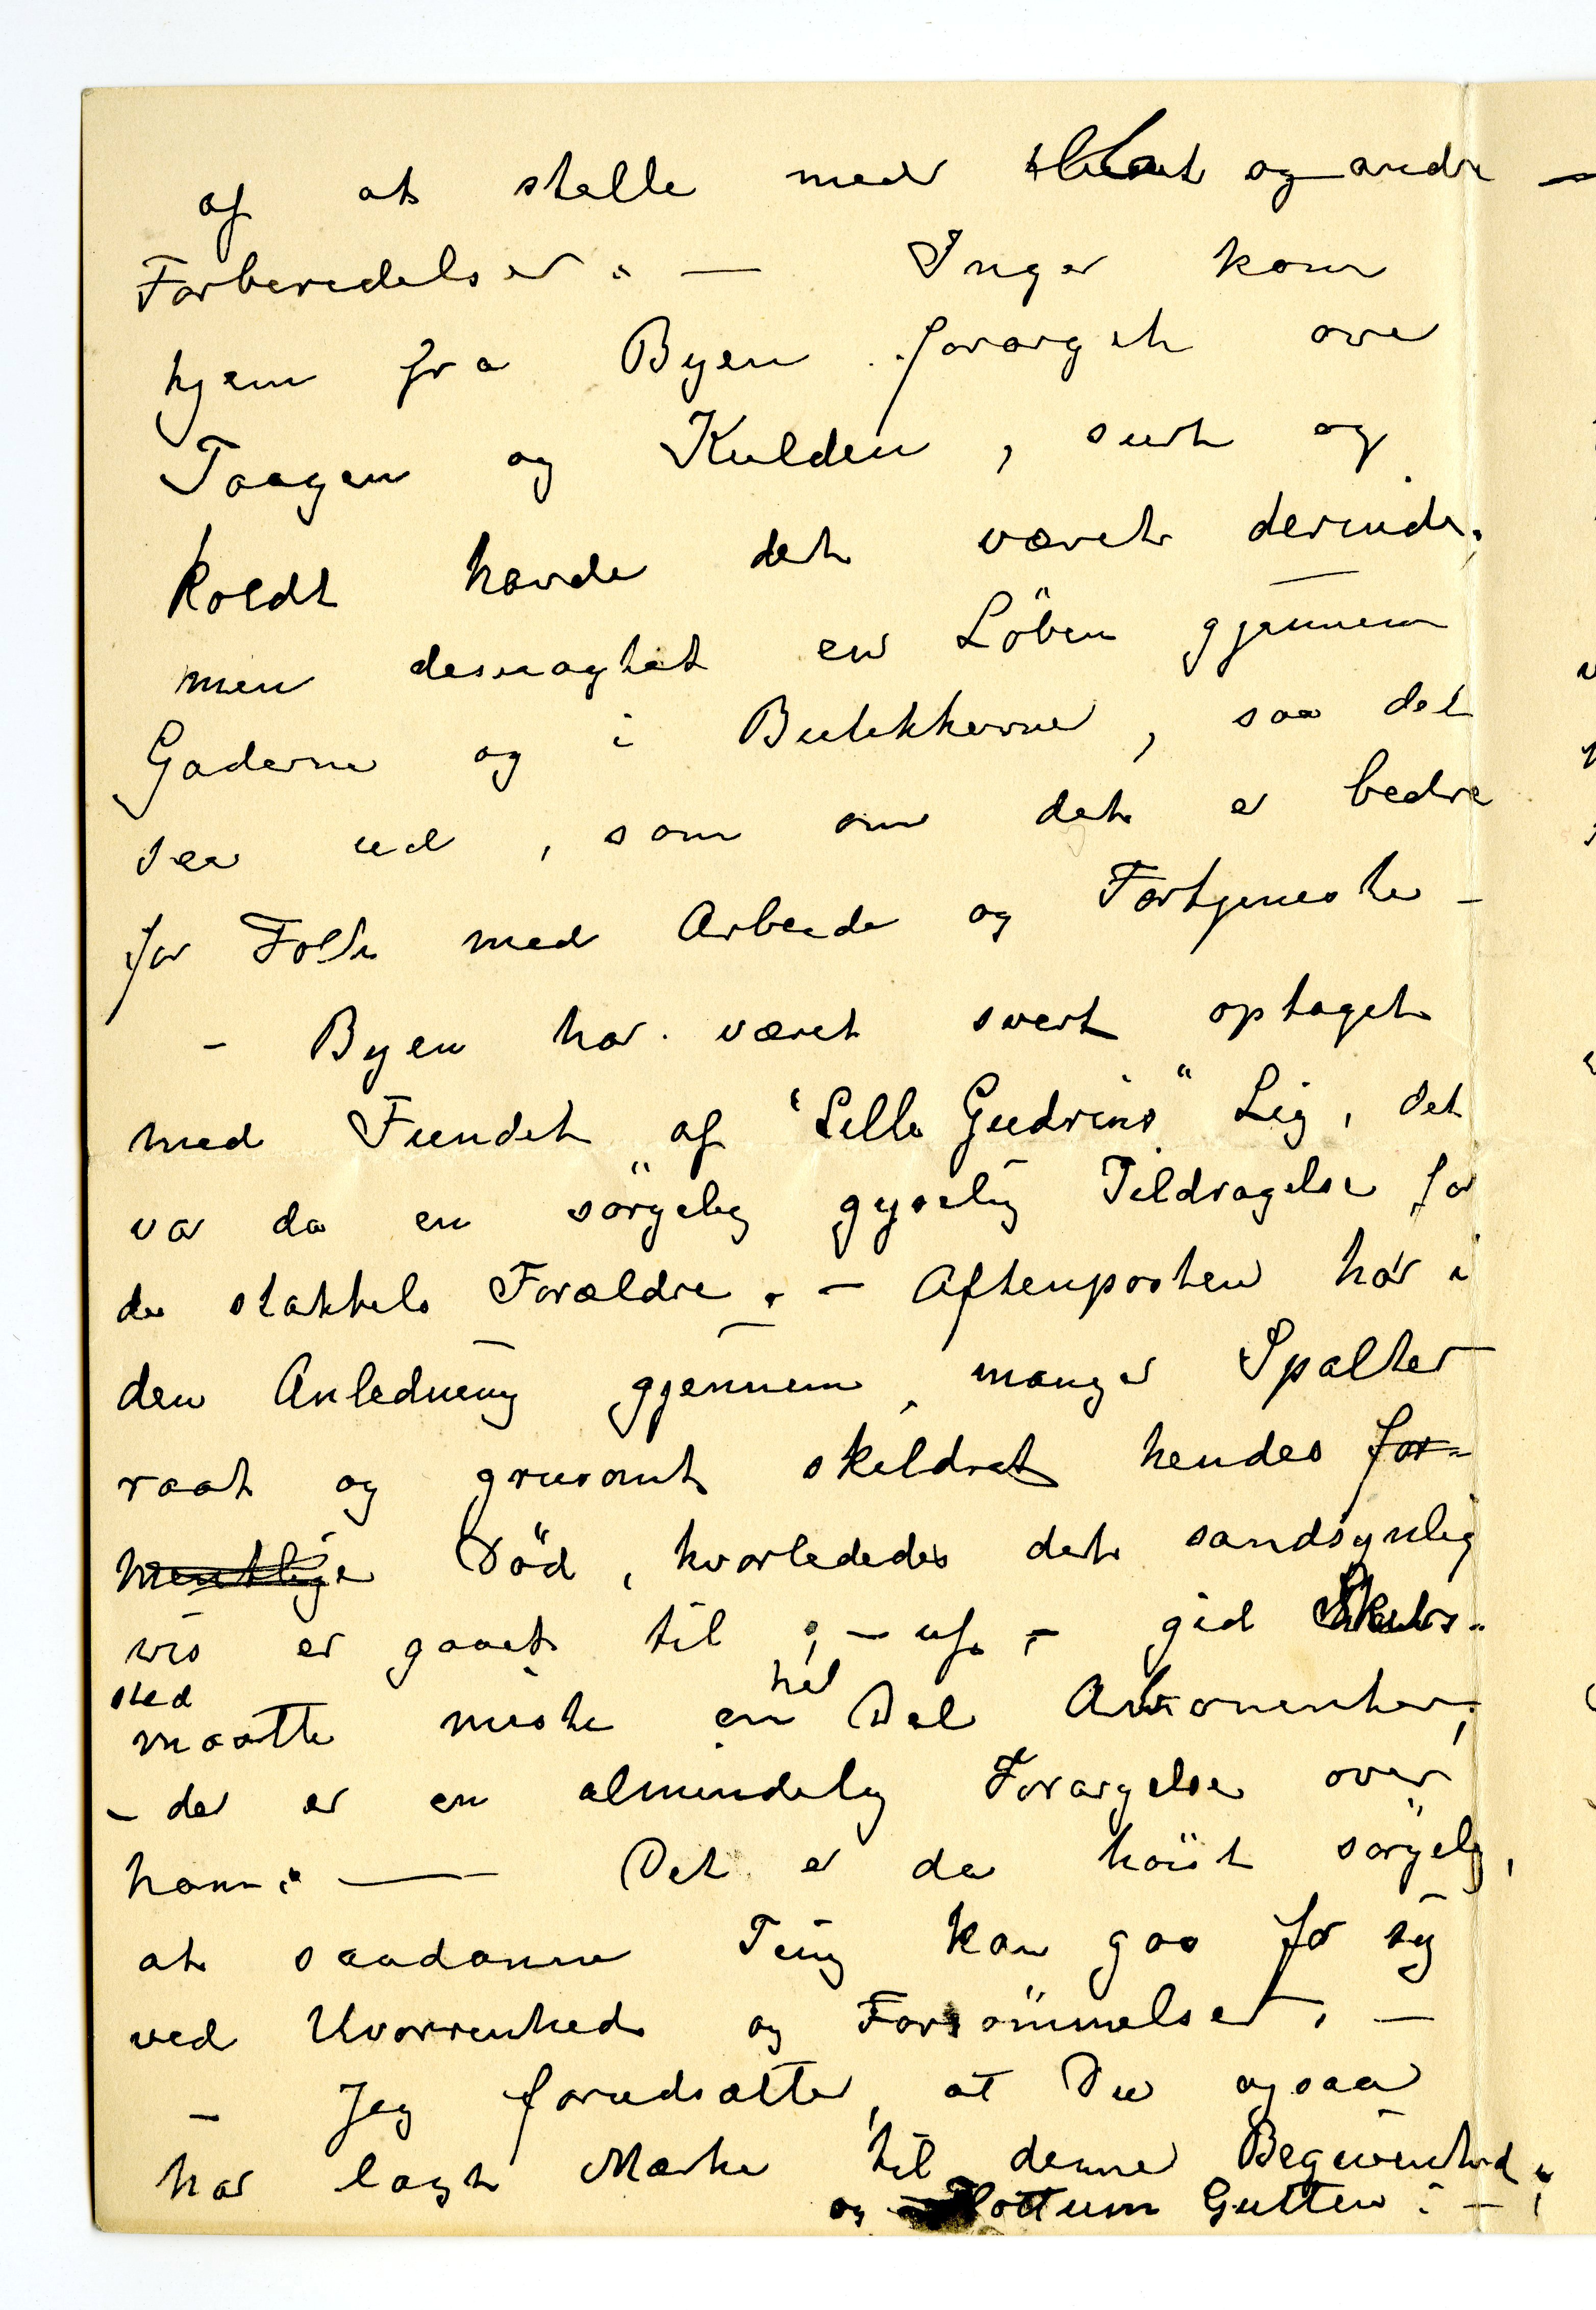 af at stelle med og andre —
Forberedelser. — Inger kom
hjem fra Byen forarget over
Taagen og Kulden, surt og
koldt havde det været derinde;
men desuagtet en Löben gjennem
Gaderne og i Butikkerne, saa det
ser ud, som om det er bedre
for Folk med Arbeide og Fortjeneste –
– Byen har været svert optaget
med Fundet af "Lille Gudruns" Lig, det
var da en sörgelig gyselig Tildragelse for
de stakkels Forældre. – Aftenposten har i
den Anledning gjennem mange Spalter
raat og grusomt skildret hendes for-
mentlige Död, hvorledes det sandsynlig
vis er gaaet til; – uf, – gid Skibs-
sted
maatte miste en hel Del Abonenter,
– der er en almindelig Forargelse over
ham. — Det er da höist sörgelig,
at saadanne Ting kan gaa for sig
ved Uvorrenhed og Forsömmelser, –
– Jeg forudsætter, at Du ogsaa
har lagt Mærke til denne Begivenhed,
og Gutten. –